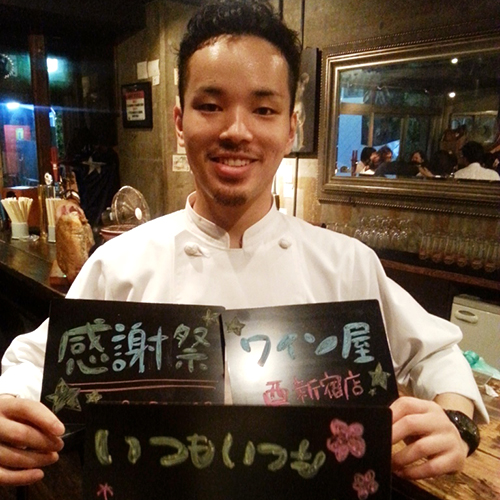 感謝祭
ワイン屋
西新宿店
いつもいつも